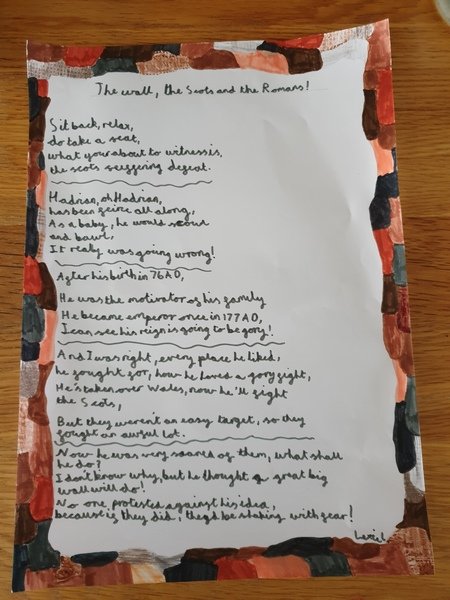 The wall, the Scots and the Romans!
Sit back, relax,
do take a seat,
what your about to witness is,
the scots suffering defeat.
Hadrian, oh Hadrian,
has been feirce all along,
As a baby, he would scour
and bawl,
It realy was going wrong!
After his birth in 76 AD,
He was the motivator of his family
He became emperor once in 177 AD,
I can see his reign is going to be gory!
And I was right, every place he liked,
he fought for, how he loved a gory fight,
He's taken over Wales, now he'll fight
the Scots,
But they weren't an easy target, so they
fought an awful lot.
Now he was very scared of them, what shall
he do?
I don't know why, but he thought a great big
wall will do!
No one protested against his idea,
because if they did, they'd be shaking with fear!